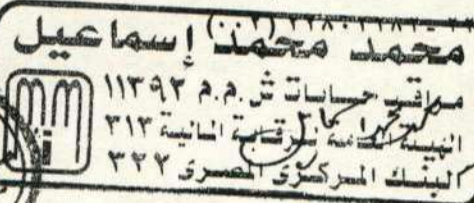 محمد محمد إسماعيل
مراقب حسابات ش.م.م ١١٣٩٣
الهيئة العامة للرقابة المالية ٣١٣
البنك المركزى المصرى ٣٢٢